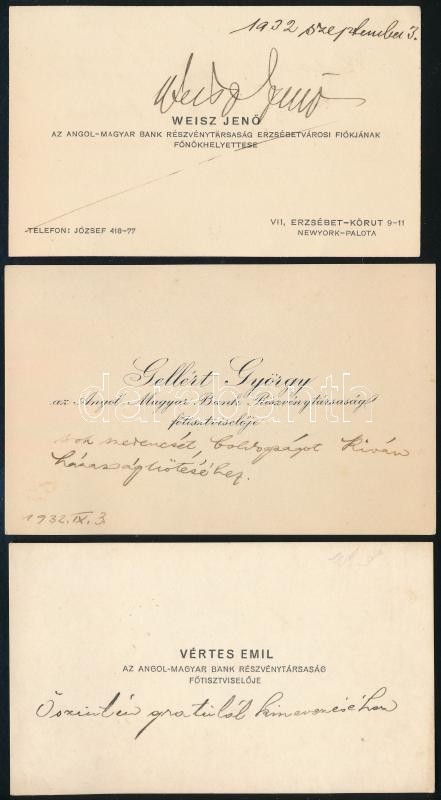 1932 szeptember 3.
Weisz Jenő
WEISZ JENŐ
AZ ANGOL-MAGYAR BANK RÉSZVÉNYTÁRSASÁG ERZSÉBETVÁROSI FIÓKJÁNAK
FŐNÖKHELYETTESE
TELEFON: JÓZSEF 418-77
VII, ERZSÉBET-KÖRUT 9-11
NEWYORK-PALOTA
Gellért György
az Angol Magyar Bank Részvénytársaság
főtisztviselője
sok szerencsét, boldogságot kíván
házasságkötéséhez.
1932. IX. 3.
VÉRTES EMIL
AZ ANGOL-MAGYAR BANK RÉSZVÉNYTÁRSASÁG
FŐTISZTVISELŐJE
Őszintén gratulál kinevezéséhez
darabanth